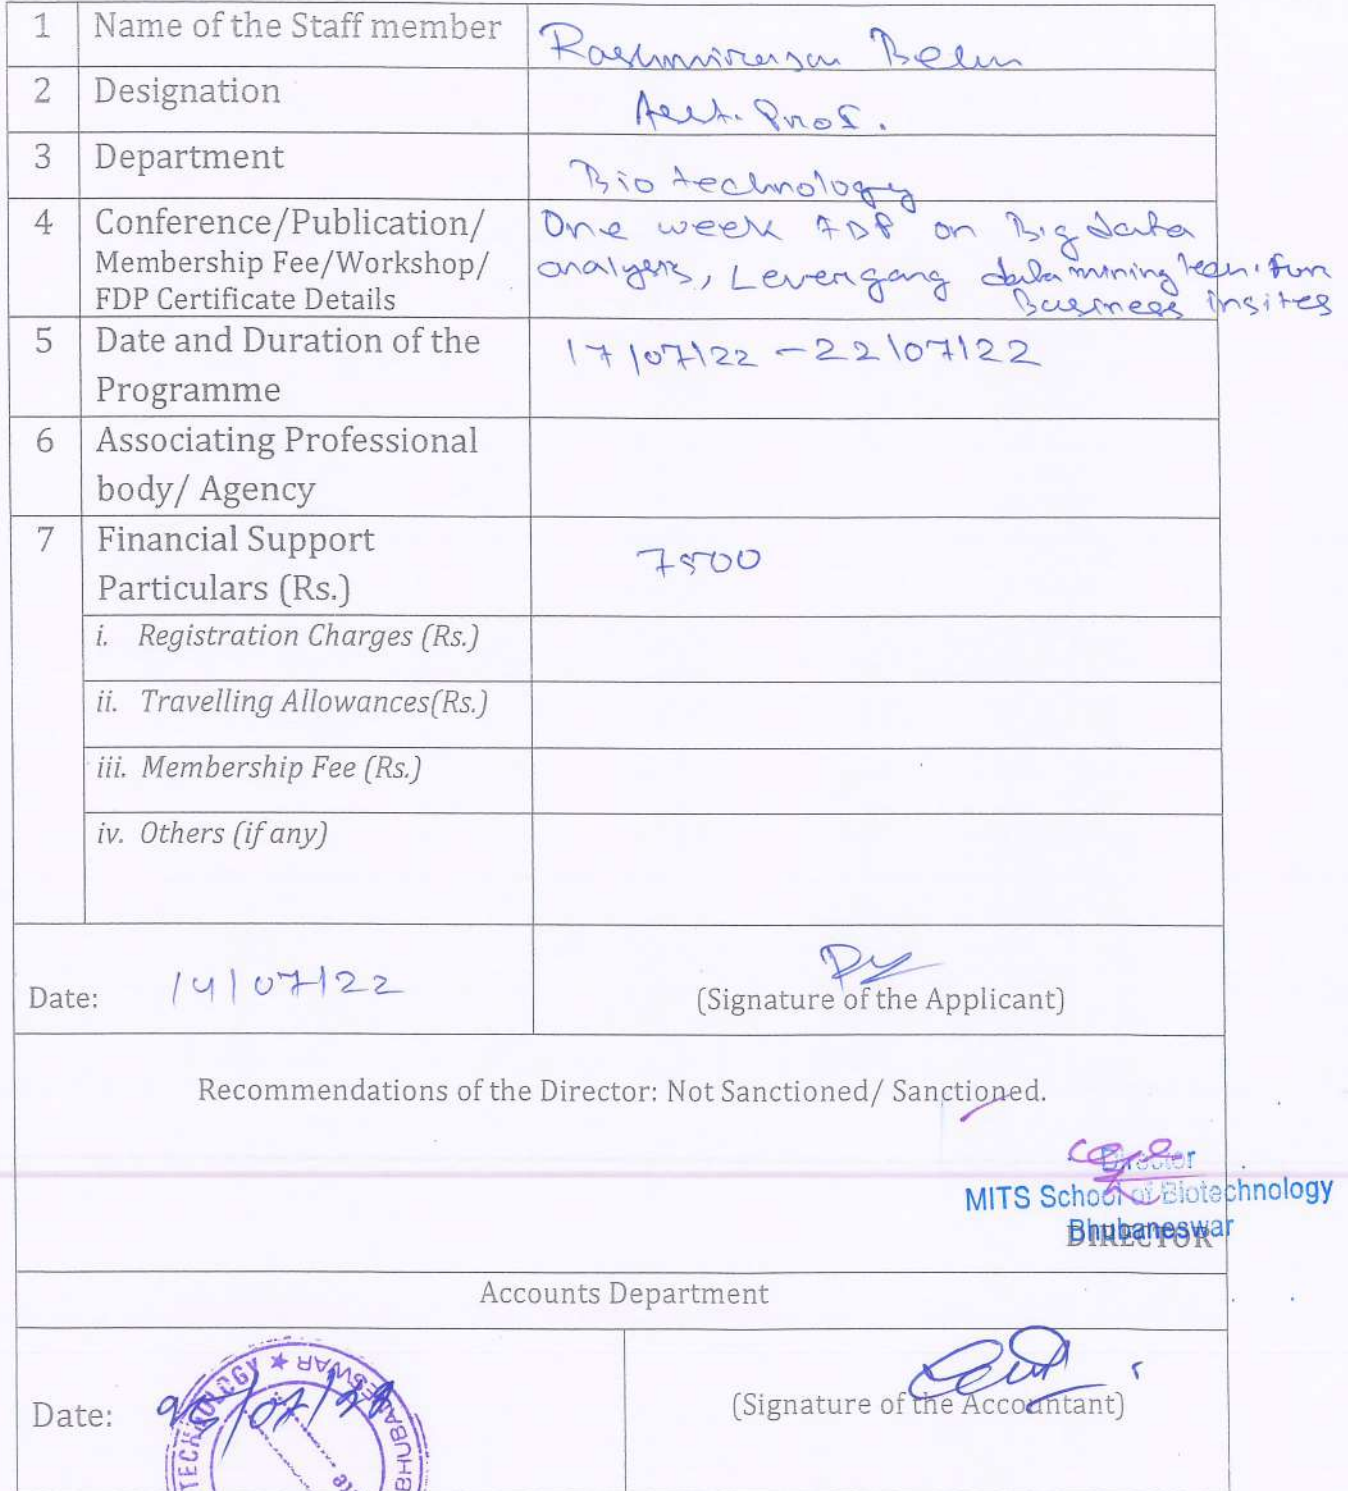 1 Name of the Staff member
2 Designation Asst. Prof.
3 Department Biotechnology
4 Conference/Publication/ One week FDP on Big data
Membership Fee/Workshop/ analysis, data mining
FDP Certificate Details Business insites
5 Date and Duration of the 17/07/22 - 22/07/22
Programme
6 Associating Professional
body/ Agency
7 Financial Support 7500
Particulars (Rs.)
i. Registration Charges (Rs.)
ii. Travelling Allowances(Rs.)
iii. Membership Fee (Rs.)
iv. Others (if any)
Date: 14/07/22
(Signature of the Applicant)
Recommendations of the Director: Not Sanctioned/ Sanctioned.
Director
MITS School of Biotechnology
Bhubaneswar
DIRECTOR
Accounts Department
Date:
(Signature of the Accountant)